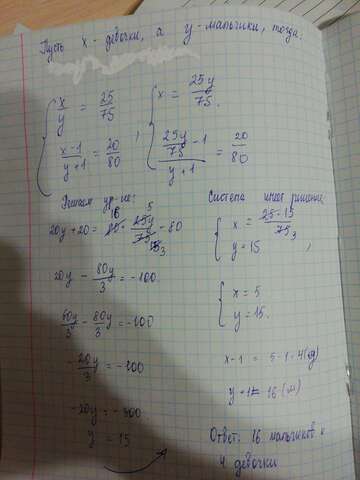 Пусть x - девочки, а y - мальчики, тогда.
{ x/y = 25/75
{ (x-1)/(y+1) = 20/80 ,
{ x = 25y/75 ,
{ (25y/75 - 1)/(y+1) = 20/80
Решаем ур-ие:
20y + 20 = 80 · 25y/75 - 80
20y - 80y/3 = -100
60y/3 - 80y/3 = -100
-20y/3 = -100
-20y = -300
y = 15
Система имеет решение:
{ x = 25·15/75 3
{ y = 15 ,
{ x = 5
{ y = 15.
x-1 = 5-1=4(д)
y+1= 16 (м)
Ответ: 16 мальчиков и
4 девочки